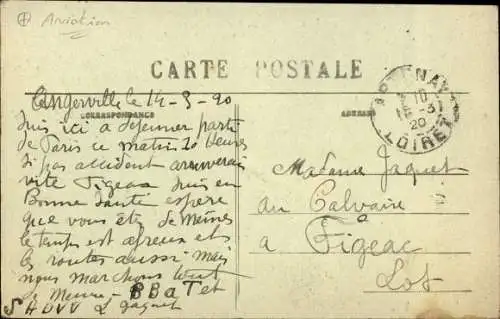 Aviation
CARTE POSTALE
CORRESPONDANCE
Angerville le 14-3-20
suis ici a dejeuner parti
de Paris ce matin 10 heures
si pas accident arriverais
vite Figeac suis en
Bonne Santé espere
que vous êtes de memes
le temps est afreux et
les routes aussi mais
nous marchons tout
de meme - BB a T et
Jaquet
ARTENAY
10
-3
20
LOIRET
Madame Jaquet
au Calvaire
a Figeac
Lot